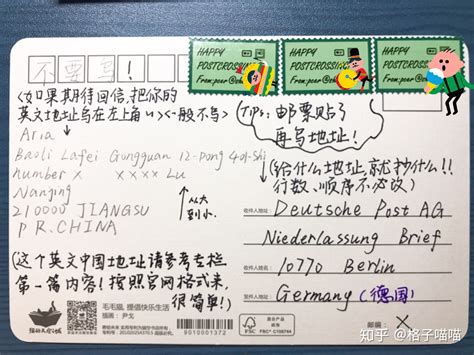 不要写!
HAPPY
POSTCROSSING
HAPPY
POSTCROSSING
HAPPY
POSTCROSSING
From: pear
From: pear
(如果期待回信,把你的
英文地址写在左上角 一般不写)
Aria
Baoli Lafei Gongguan 12-Dong 401-Shi
number x xxxx Lu
Nanjing
210000 JIANGSU
P.R.CHINA
从大
到小.
(这个英文中国地址请参考专栏
第一篇内容!按照官网格式来,
很简单!)
(Tips: 邮票贴了
再写地址!
(给什么地址,就抄什么!!
行数、顺序不必改)
收件人地址: Deutsche Post AG
Niederlassung Brief
收件人地址: 10770 Berlin
收件人姓名: Germany (德国)
毛毛猫,提倡快乐生活
插画 | 尹戈
9010001372
FSC
FSC® C108744
知乎 @格子喵喵